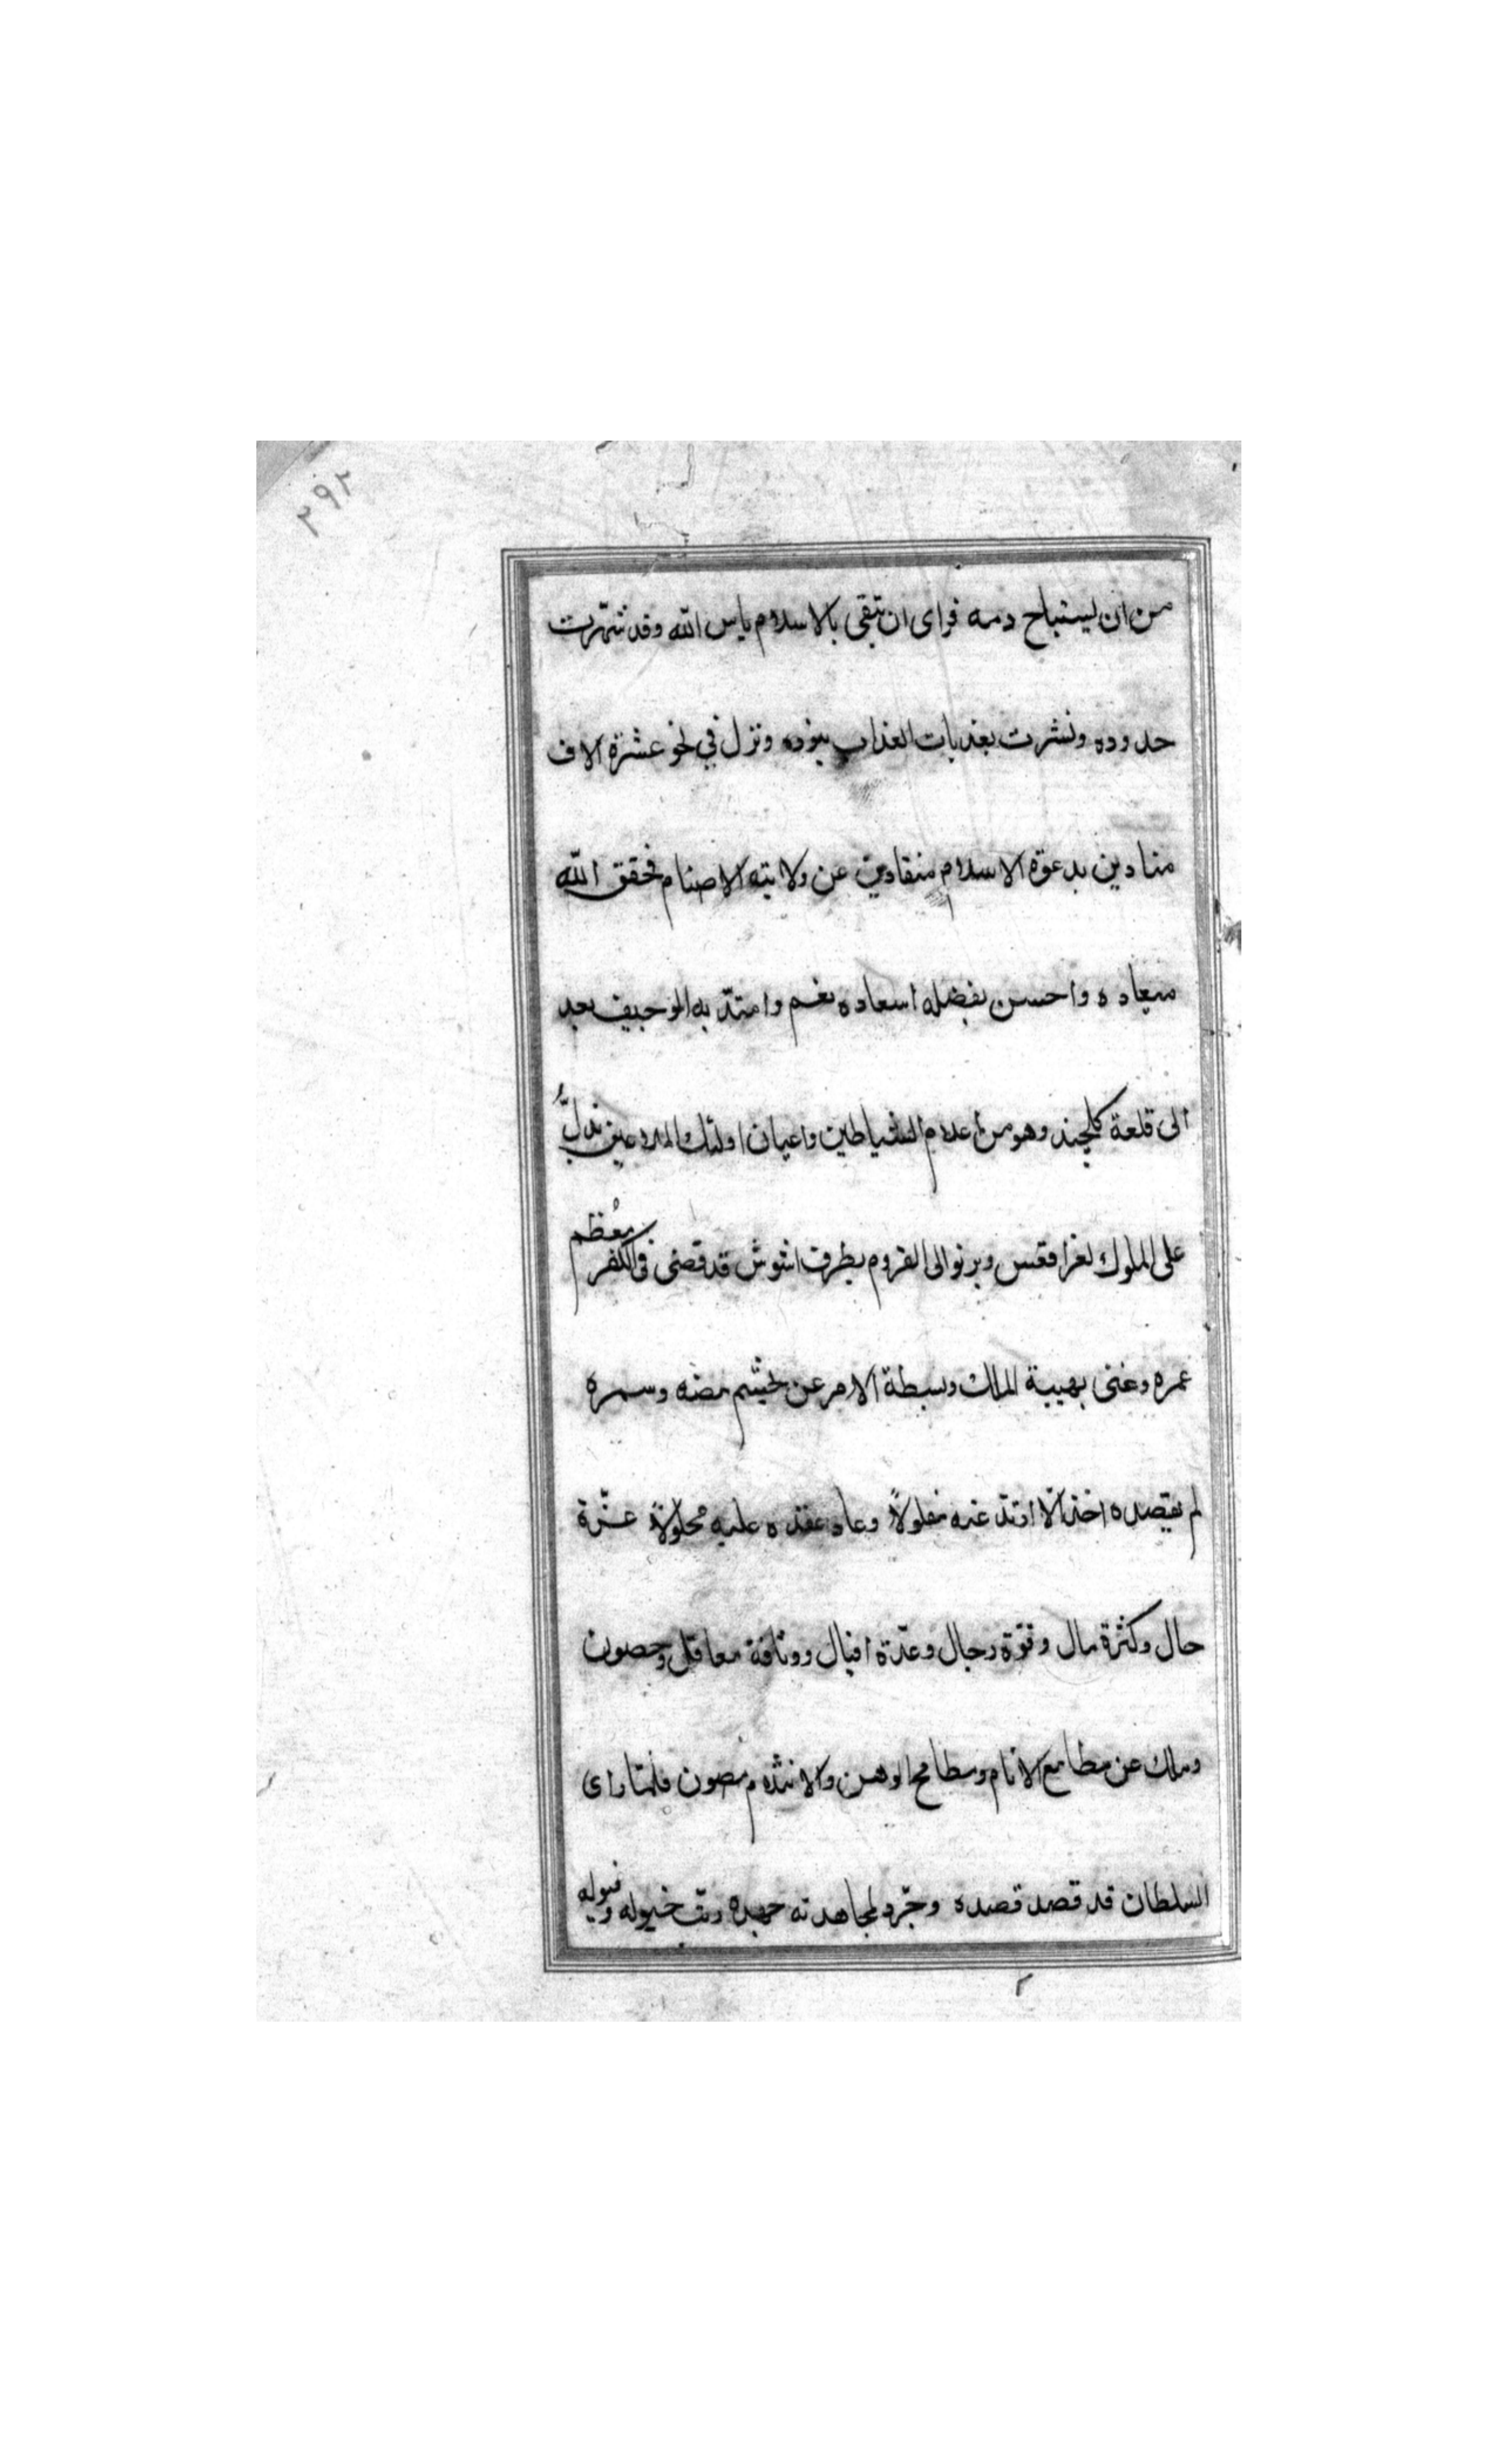 ٢٩٢
من ان يستباح دمه فراى ان يتقى بالاسلام باس الله وقد شهرت
حدوده ونشرت بعذبات العذاب بنوده ونزل في نحو عشرة الاف
منادين بدعوة الاسلام منقادين عن ولاية الاصنام فحقق الله
ميعاده واحسن بفضله اسعاده نعم وامتد به الوجيف بعد
الى قلعة كلجند وهو من اعلام الشياطين واعيان اولئك الملاعين يدلّ
على الملوك لغزا فقس ويرنو الى القروم بطرف اشوش قد قضى فى الكفر معظم
عمره وغنى بهيبة الملك وبسطة الامر عن تجشم بيضه وسمره
لم يقصده احد الّا ارتدّ عنه مفلولاً وعاد عقده عليه محلولاً عزّة
حال وكثرة مال وقوة رجال وعدّة افيال ووثاقة معاقل وحصون
وملك عن مطامع الانام ومطامح الوهن والانثلام مصون فلمّا راى
السلطان قد قصد قصده وجرّد لمجاهدته جهده رتّب خيوله وفيوله